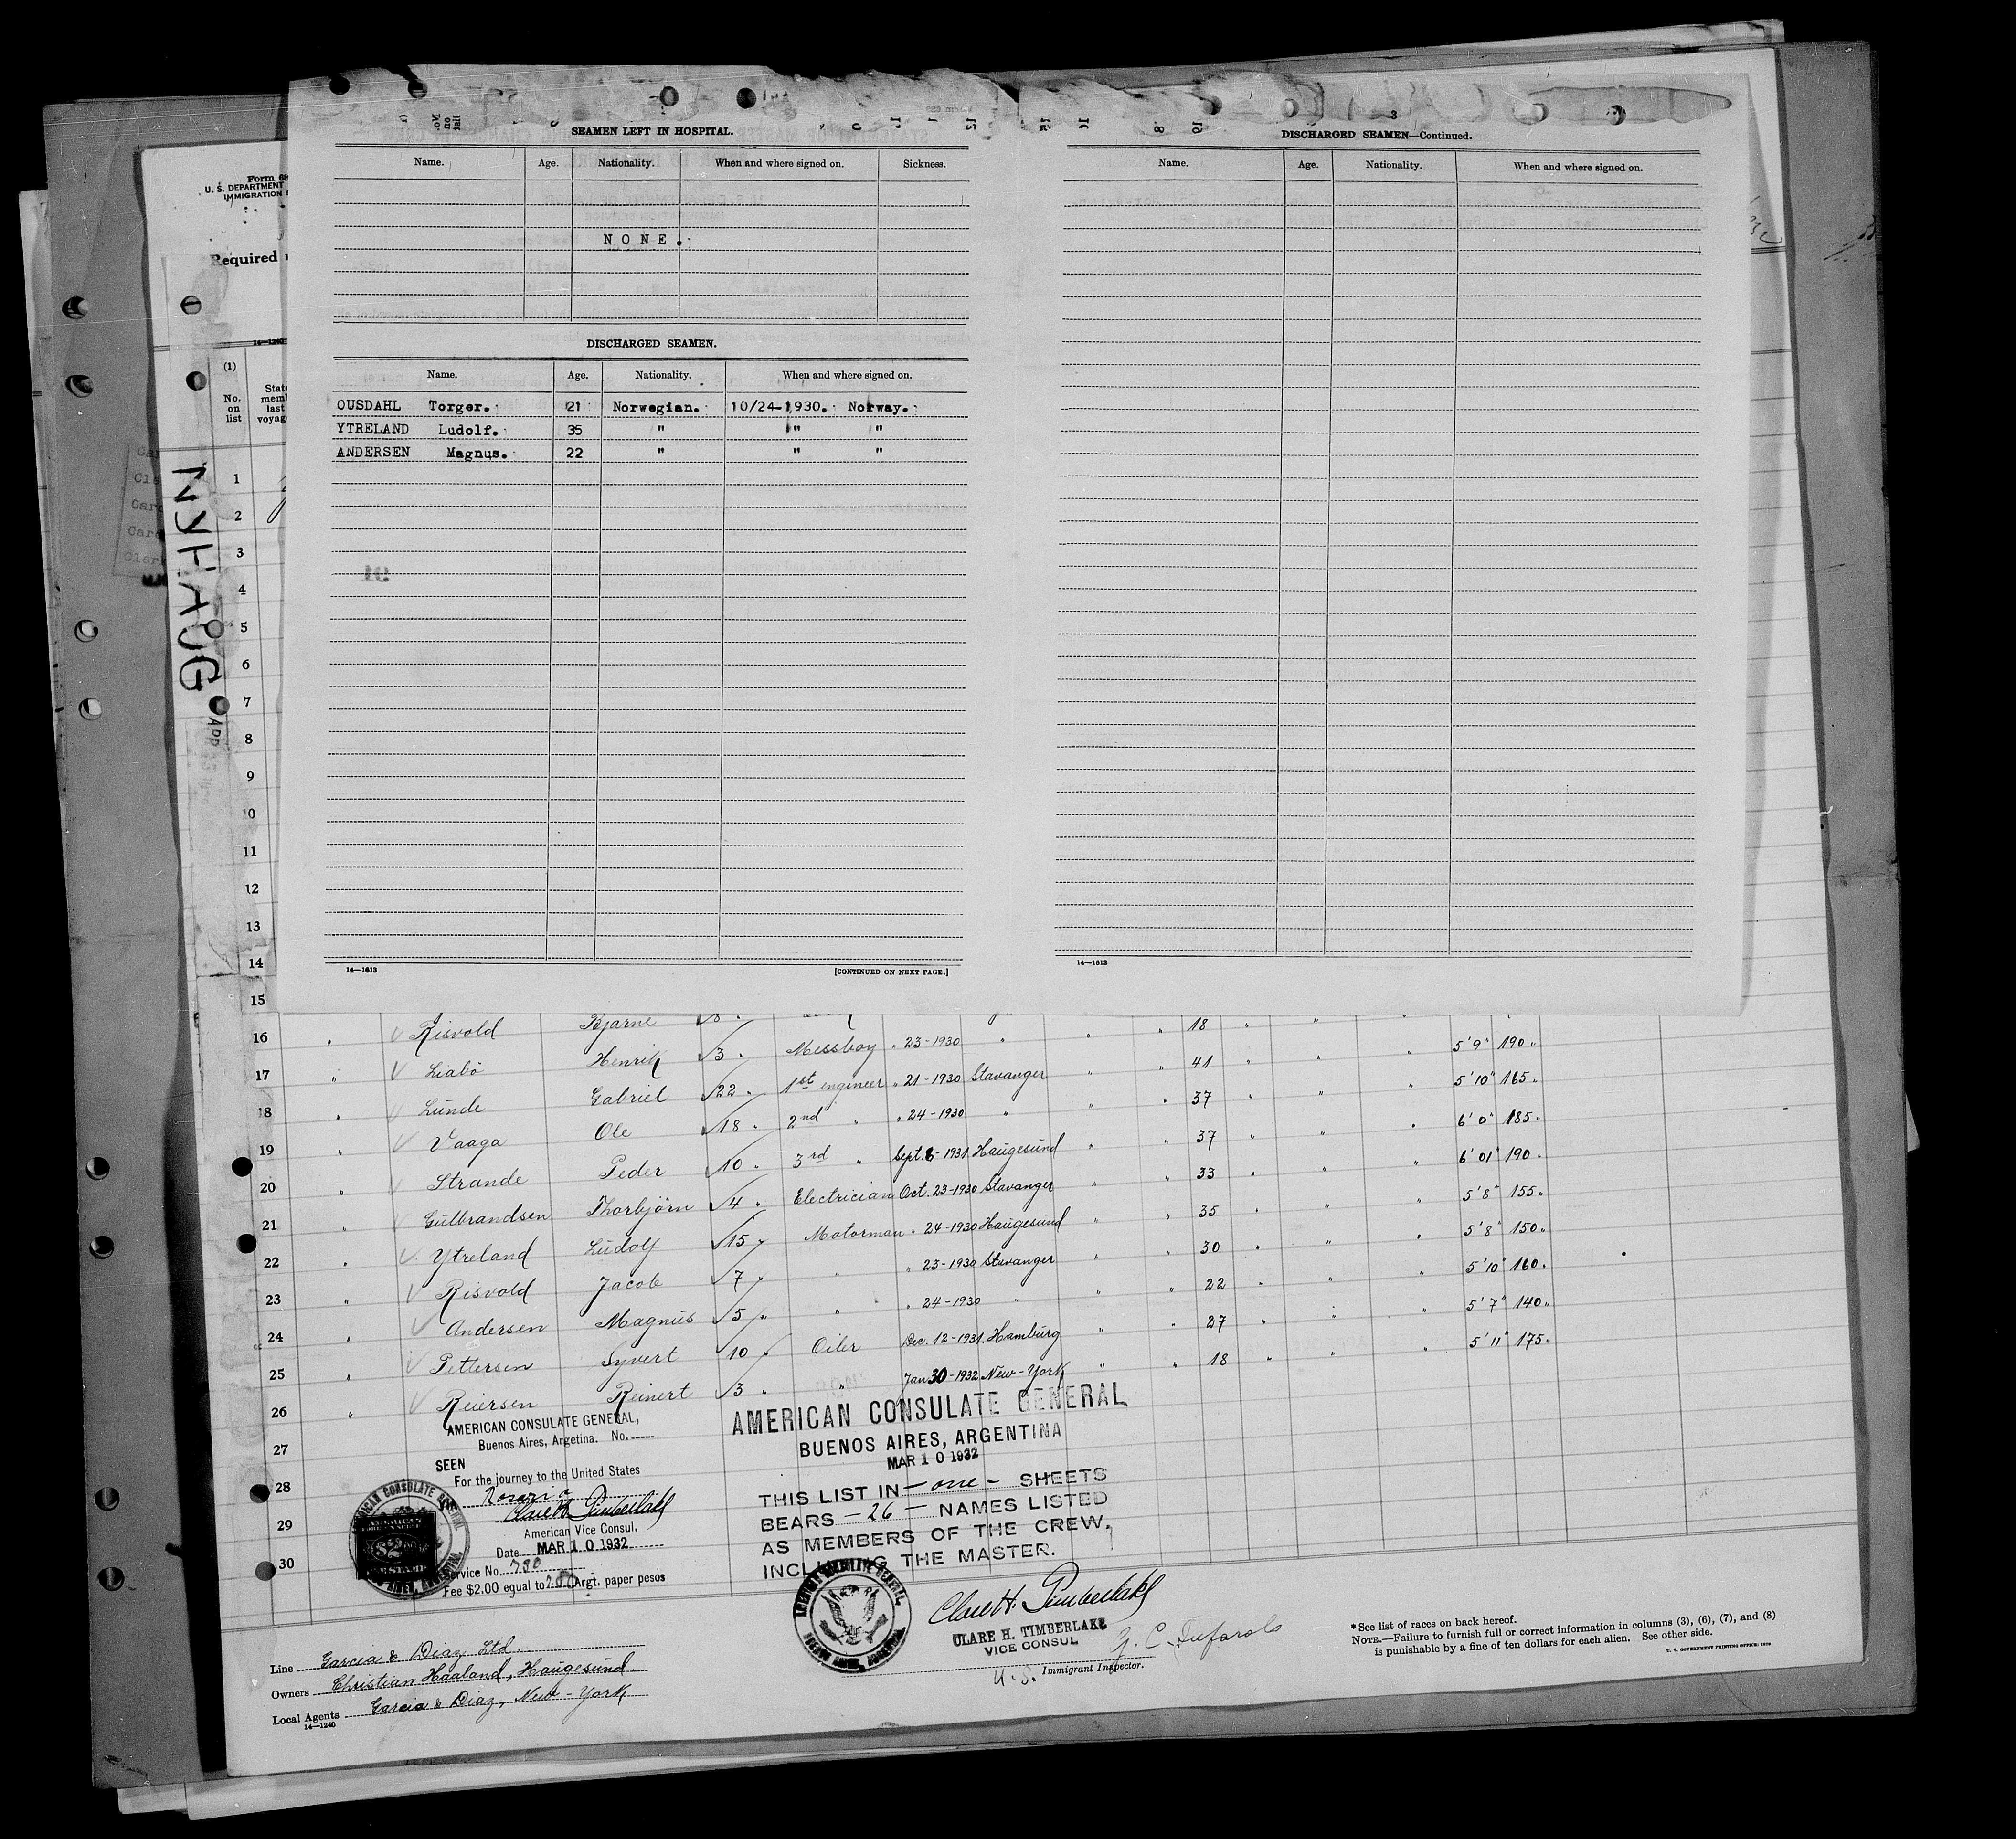 SEAMEN LEFT IN HOSPITAL.
Name. Age. Nationality. When and where signed on. Sickness.
NONE.
DISCHARGED SEAMEN.
Name. Age. Nationality. When and where signed on.
OUSDAHL Torger. 21 Norwegian. 10/24-1930. Norway.
YTRELAND Ludolf. 35 " " "
ANDERSEN Magnus. 22 " " "
14—1613 [CONTINUED ON NEXT PAGE.]
3
DISCHARGED SEAMEN—Continued.
Name. Age. Nationality. When and where signed on.
14—1613
Form 68
U. S. DEPARTMENT
IMMIGRATION
Required
14—1240
(1)
No. on list
NYHAUG
1
2
3
4
5
6
7
8
9
10
11
12
13
14
15
16 " Risvold Bjarne 18
17 " Liabö Henrik 3 " Messboy " 23-1930 " " " 41 " " " 5'9" 190 "
18 " Lünde Gabriel 22 " 1st engineer " 21-1930 Stavanger " " 37 " " " 5'10" 165 "
19 " Vaaga Ole 18 " 2nd " " 24-1930 " " " 37 " " " 6'0" 185 "
20 " Strande Peder 10 " 3rd " Sept. 8-1931 Haugesund " " 33 " " " 6'01" 190 "
21 " Gülbrandsen Thorbjörn 4 " Electrician Oct. 23-1930 Stavanger " " 35 " " " 5'8" 155 "
22 " Ytreland Lüdolf 15 " Motorman " 24-1930 Haugesund " " 30 " " " 5'8" 150 "
23 " Risvold Jacob 7 " " " 23-1930 Stavanger " " 22 " " " 5'10" 160 "
24 " Andersen Magnüs 5 " " " 24-1930 " " " 27 " " " 5'7" 140 "
25 " Pettersen Syvert 10 " Oiler Dec. 12-1931 Hamburg " " 18 " " " 5'11" 175 "
26 " Reiersen Reinert 3 " " Jan 30-1932 New-York
27
28
29
30
AMERICAN CONSULATE GENERAL,
Buenos Aires, Argetina. No.
SEEN
For the journey to the United States
Rosario
Clare H. Timberlake
American Vice Consul.
Date MAR 10 1932
Service No. 730
Fee $2.00 equal to Argt. paper pesos
AMERICAN CONSULATE GENERAL
BUENOS AIRES, ARGENTINA
MAR 10 1932
THIS LIST IN — one — SHEETS
BEARS — 26 — NAMES LISTED
AS MEMBERS OF THE CREW,
INCLUDING THE MASTER.
AMERICAN CONSULATE GENERAL
BUENOS AIRES, ARGENTINA
Clare H. Timberlake
CLARE H. TIMBERLAKE
VICE CONSUL
U.S. Immigrant Inspector.
Line Garcia & Diaz Ltd.
Owners Christian Haaland, Haugesund.
Local Agents Garcia & Diaz, New-York
14—1240
* See list of races on back hereof.
NOTE.—Failure to furnish full or correct information in columns (3), (6), (7), and (8)
is punishable by a fine of ten dollars for each alien. See other side.
U. S. GOVERNMENT PRINTING OFFICE: